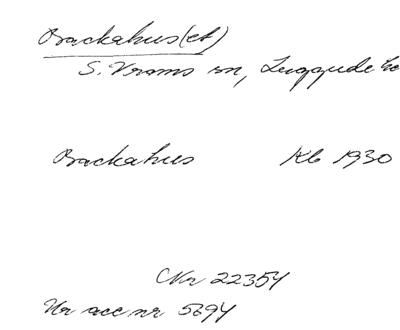 Brackahus(et)
S. Vrams sn, Luggude hd
Brackahus Kb 1930
CNr 22354
Ur acc nr 5694